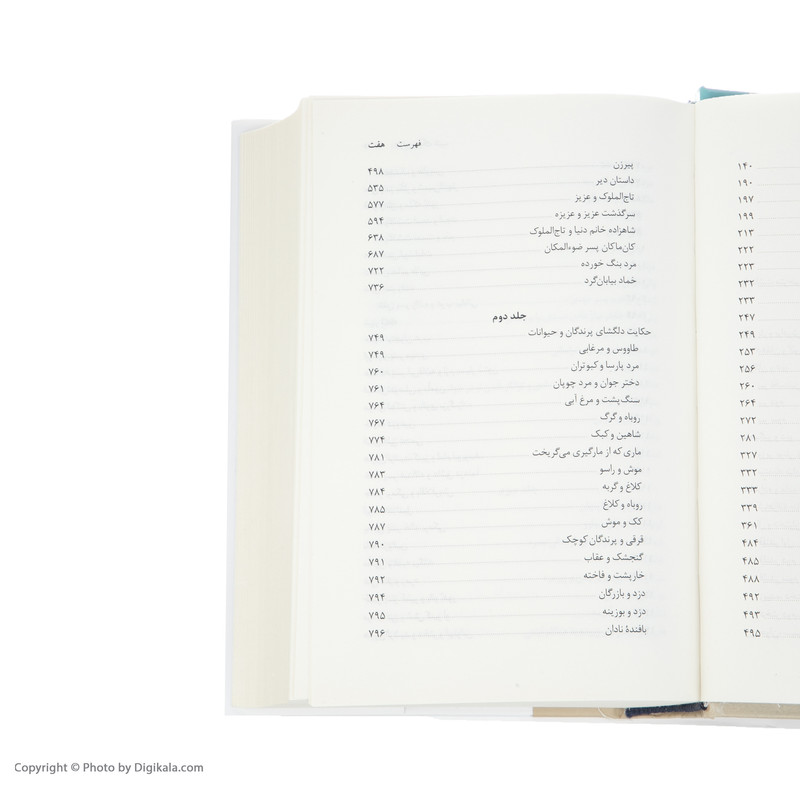 ۱۴۰
۱۹۰
۱۹۷
۱۹۹
۲۱۳
۲۲۲
۲۲۳
۲۳۲
۲۳۳
۲۴۷
۲۴۹
۲۵۳
۲۵۶
۲۶۰
۲۶۴
۲۷۲
۲۸۱
۳۲۷
۳۳۲
۳۳۳
۳۳۹
۳۶۱
۴۸۴
۴۸۵
۴۸۸
۴۹۲
۴۹۳
۴۹۵
فهرست هفت
پیرزن ۴۹۸
داستان دیر ۵۳۵
تاج‌الملوک و عزیز ۵۷۷
سرگذشت عزیز و عزیزه ۵۹۴
شاهزاده خانم دنیا و تاج‌الملوک ۶۳۸
کان‌ماکان پسر ضوءالمکان ۶۸۷
مرد بنگ خورده ۷۲۲
حماد بیابان‌گرد ۷۳۶
جلد دوم
حکایت دلگشای پرندگان و حیوانات ۷۴۹
طاووس و مرغابی ۷۴۹
مرد پارسا و کبوتران ۷۶۰
دختر جوان و مرد چوپان ۷۶۱
سنگ‌پشت و مرغ آبی ۷۶۴
روباه و گرگ ۷۶۷
شاهین و کبک ۷۷۴
ماری که از مارگیری می‌گریخت ۷۸۱
موش و راسو ۷۸۳
کلاغ و گربه ۷۸۴
روباه و کلاغ ۷۸۵
کک و موش ۷۸۷
قرقی و پرندگان کوچک ۷۹۰
گنجشک و عقاب ۷۹۱
خارپشت و فاخته ۷۹۲
دزد و بازرگان ۷۹۴
دزد و بوزینه ۷۹۵
بافندهٔ نادان ۷۹۶
Copyright © Photo by Digikala.com